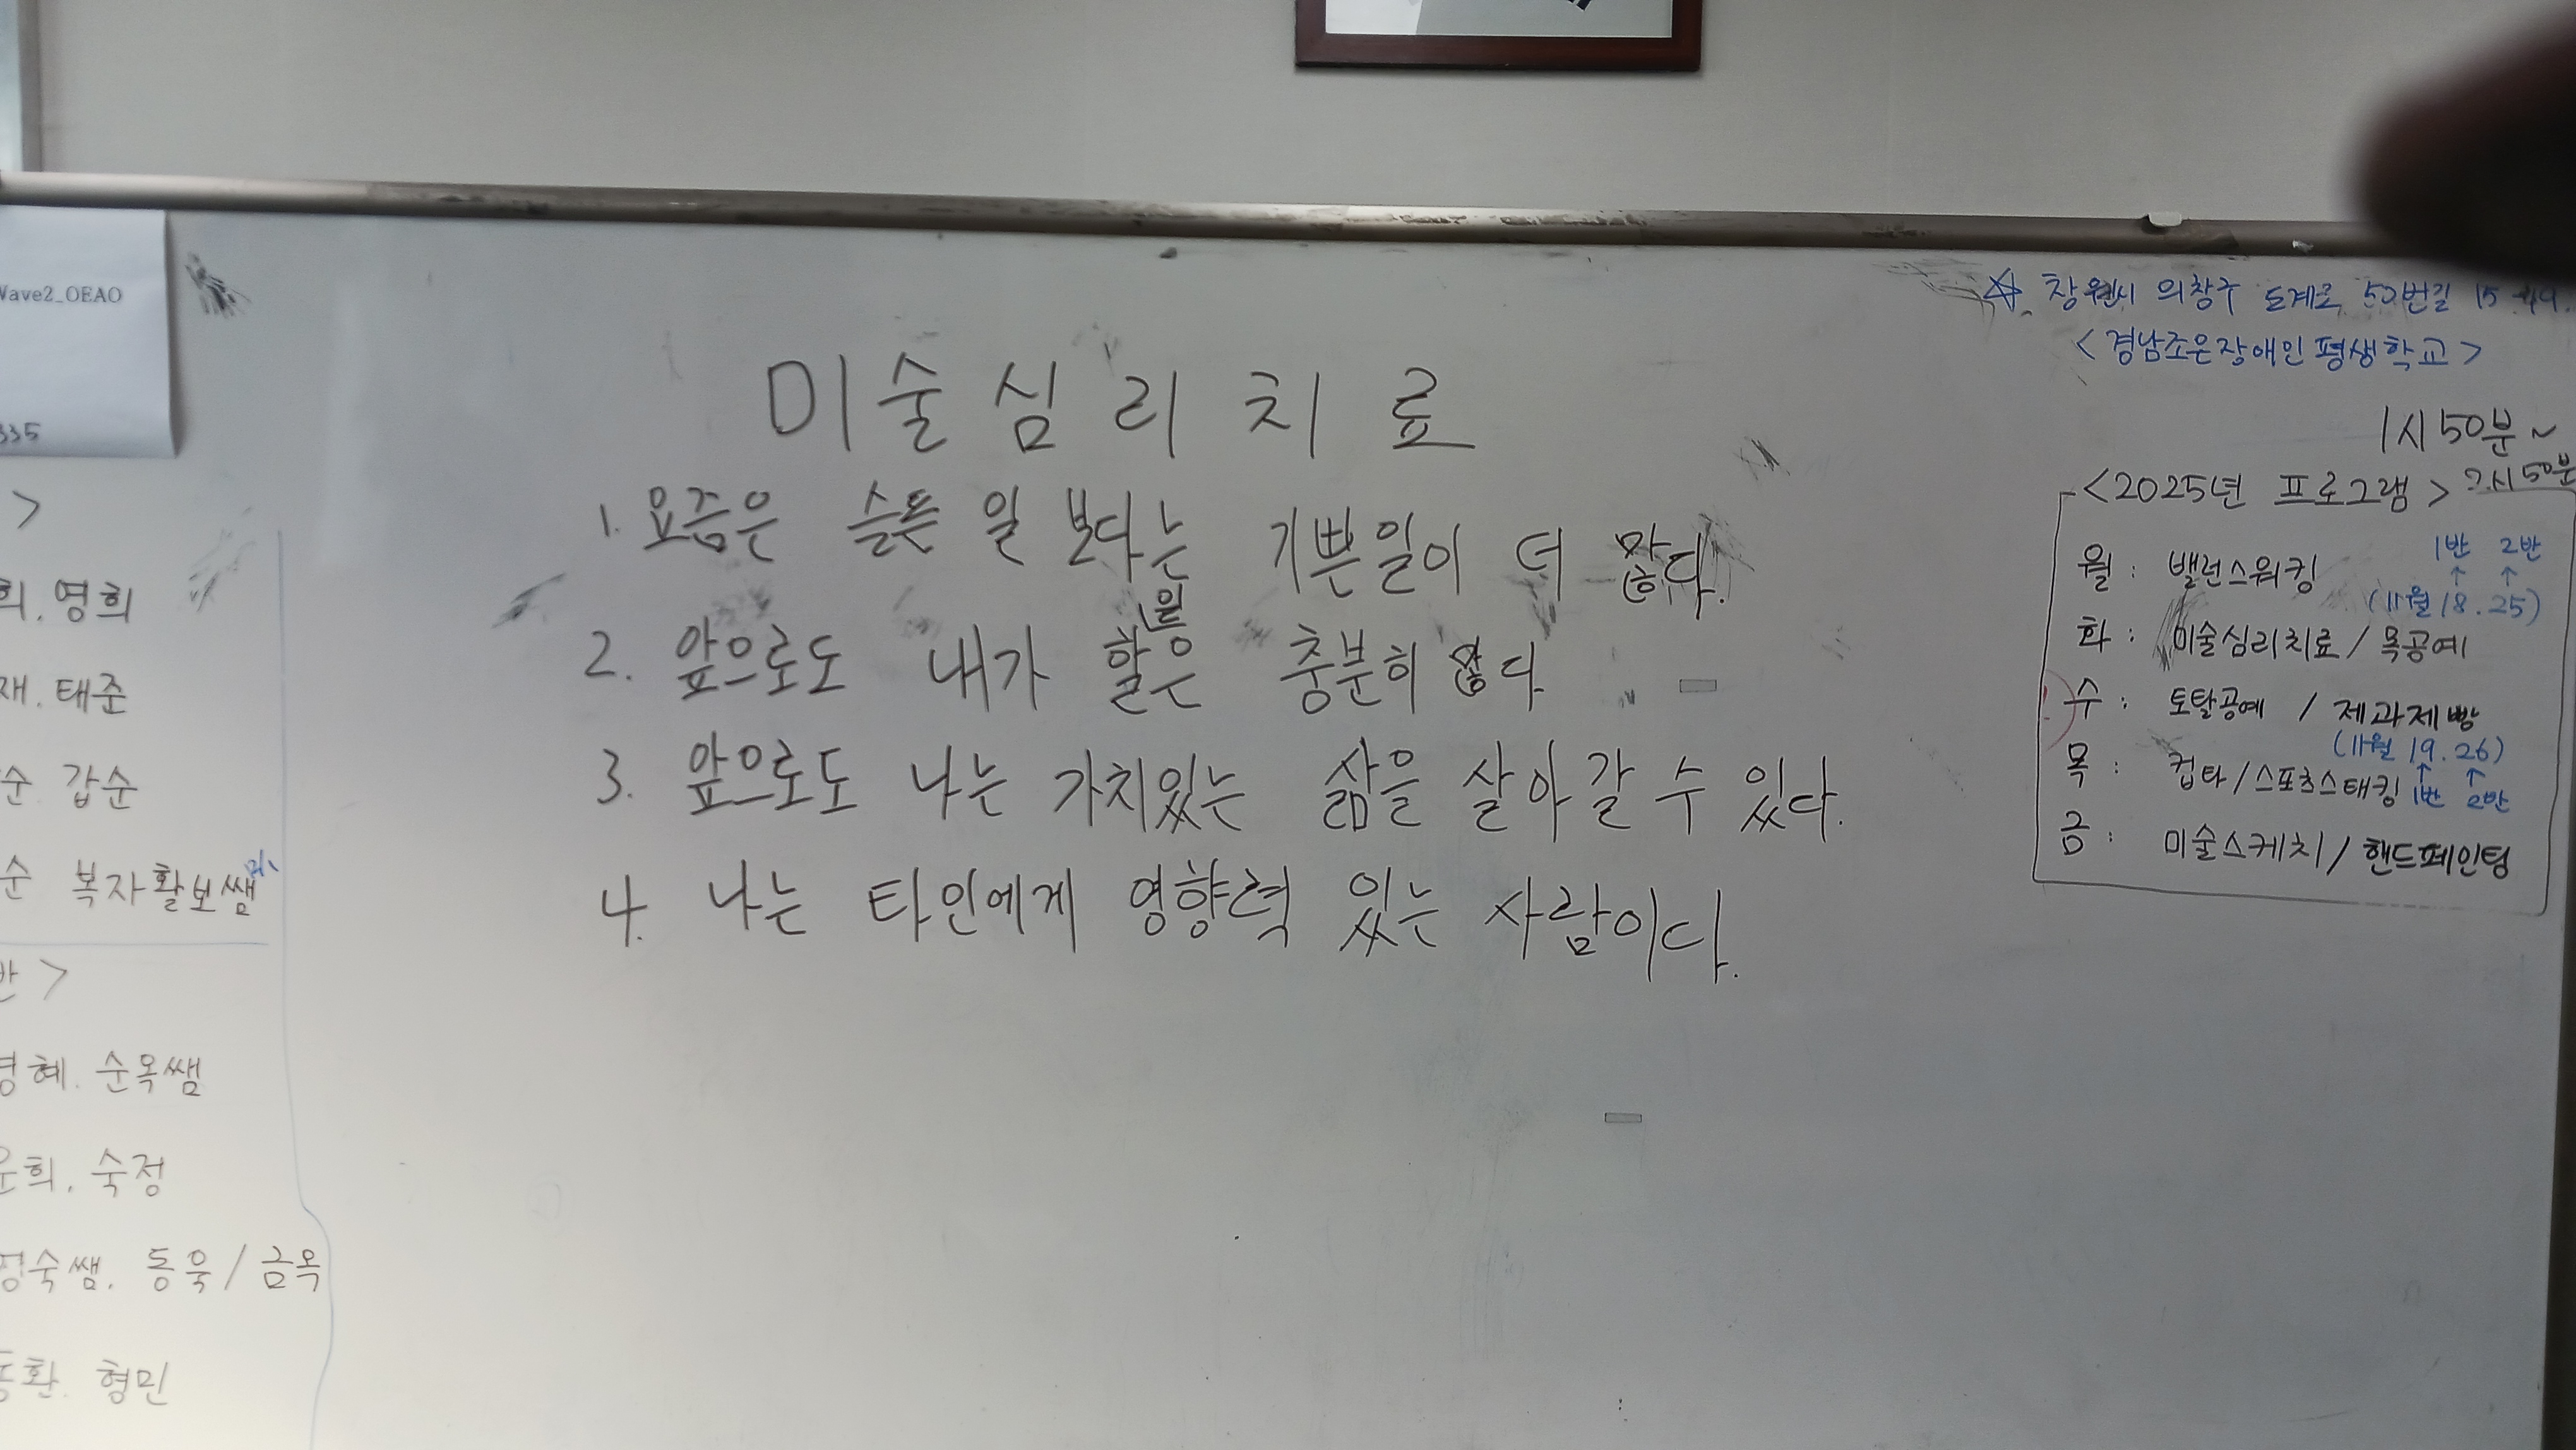 Wave2_OEAO
335
>
희. 영희
재. 태준
순 갑순
순 복자활보쌤
반 >
영혜. 순옥쌤
운희. 숙정
정숙쌤. 동욱/금옥
동환. 형민
미술심리치료
1. 요즘은 슬픈 일 보다는 기쁜일이 더 많다.
일
2. 앞으로도 내가 할은 충분히 많다
3. 앞으로도 나는 가치있는 삶을 살아갈 수 있다.
4. 나는 타인에게 영향력 있는 사람이다.
☆. 창원시 의창구 도계로 50번길 15-49.
<경남조은장애인평생학교>
1시50분~
<2025년 프로그램> 2시50분
1반 2반
월: 밸런스워킹
(11월 18. 25)
화: 미술심리치료/목공예
수: 토탈공예 / 제과제빵
(11월 19. 26)
목: 컵타/스포츠스태킹 1반 2반
금: 미술스케치/핸드페인팅